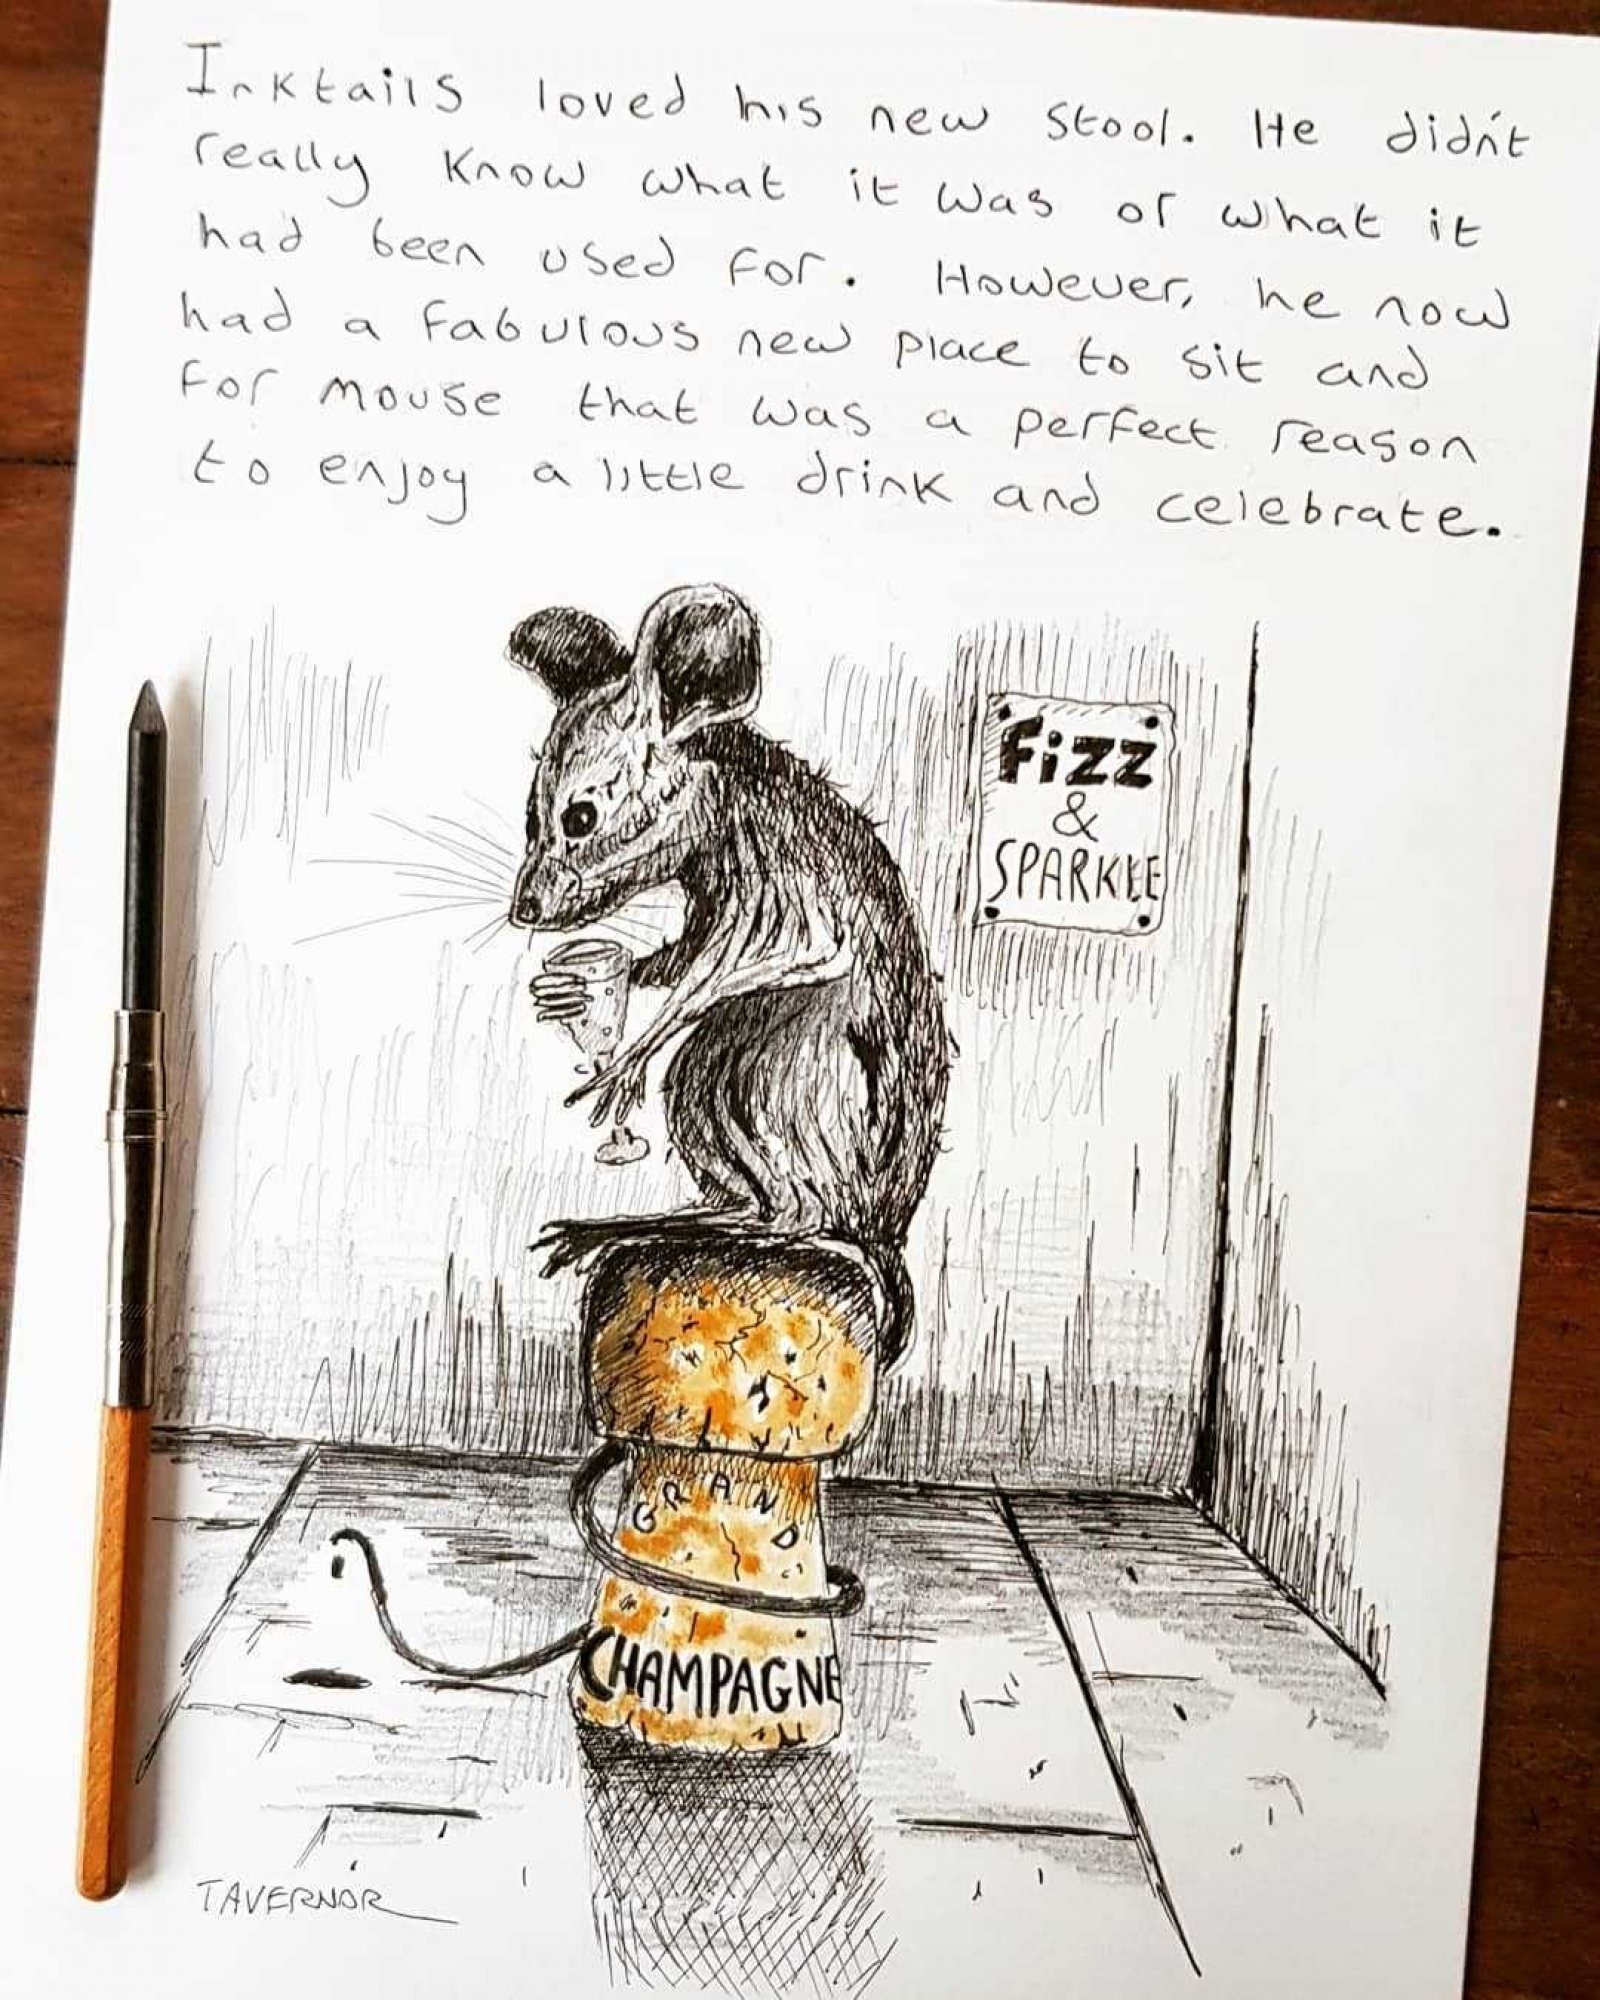 Inktails loved his new stool. He didn't
really know what it was or what it
had been used for. However, he now
had a fabulous new place to sit and
for mouse that was a perfect reason
to enjoy a little drink and celebrate.
Fizz
&
SPARKLE
GRAND
CHAMPAGNE
TAVERNOR